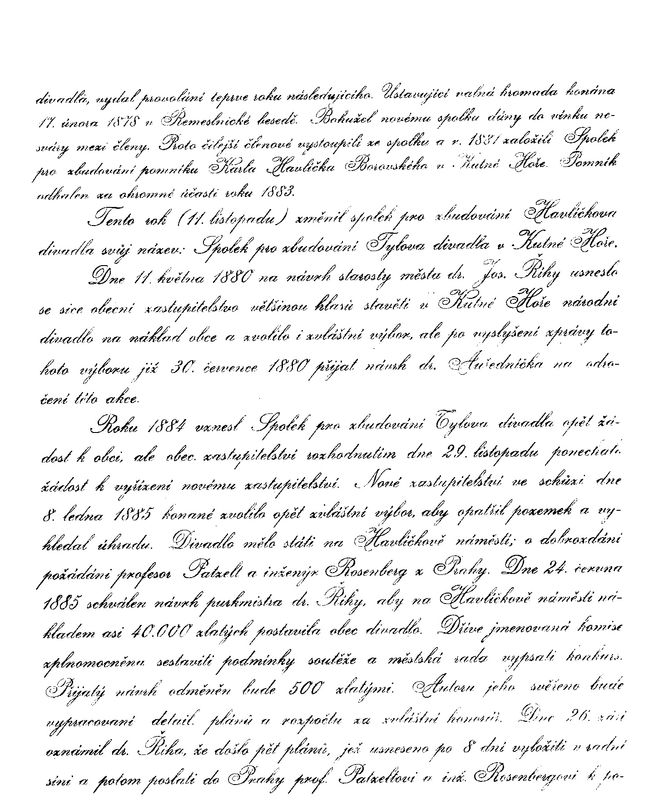 divadla, vydal provolání teprve roku následujícího. Ustavující valná hromada konána
17. února 1878 v Řemeslnické besedě. Bohužel novému spolku dány do vínku ne-
sváry mezi členy. Proto čilejší členové vystoupili ze spolku a r. 1881 založili Spolek
pro zbudování pomníku Karla Havlíčka Borovského v Kutné Hoře. Pomník
odhalen za ohromné účasti roku 1883.
Tento rok (11. listopadu) změnil spolek pro zbudování Havlíčkova
divadla svůj název: Spolek pro zbudování Tylova divadla v Kutné Hoře.
Dne 11. května 1880 na návrh starosty města dr. Jos. Říhy usneslo
se sice obecní zastupitelstvo většinou hlasů stavěti v Kutné Hoře národní
divadlo na náklad obce a zvolilo i zvláštní výbor, ale po vyslyšení zprávy to-
hoto výboru již 30. července 1880 přijat návrh dr. Auředníčka na odro-
čení této akce.
Roku 1884 vznesl Spolek pro zbudování Tylova divadla opět žá-
dost k obci, ale obec. zastupitelství rozhodnutím dne 29. listopadu ponechali
žádost k vyřízení novému zastupitelství. Nové zastupitelství ve schůzi dne
8. ledna 1885 konané zvolilo opět zvláštní výbor, aby opatřil pozemek a vy-
hledal úhradu. Divadlo mělo státi na Havlíčkově náměstí; o dobrozdání
požádáni profesor Patzelt a inženýr Rosenberg z Prahy. Dne 24. června
1885 schválen návrh purkmistra dr. Říhy, aby na Havlíčkově náměstí ná-
kladem asi 40.000 zlatých postavila obec divadlo. Dříve jmenovaná komise
zplnomocněna sestaviti podmínky soutěže a městská rada vypsati konkurs.
Přijatý návrh odměněn bude 500 zlatými. Autoru jeho svěřeno bude
vypracovaní detail. plánů a rozpočtu za zvláštní honorář. Dne 26. září
oznámil dr. Říha, že došlo pět plánů, jež usneseno po 8 dní vyložiti v radní
síni a potom poslati do Prahy prof. Patzeltovi a inž. Rosenbergovi k po-